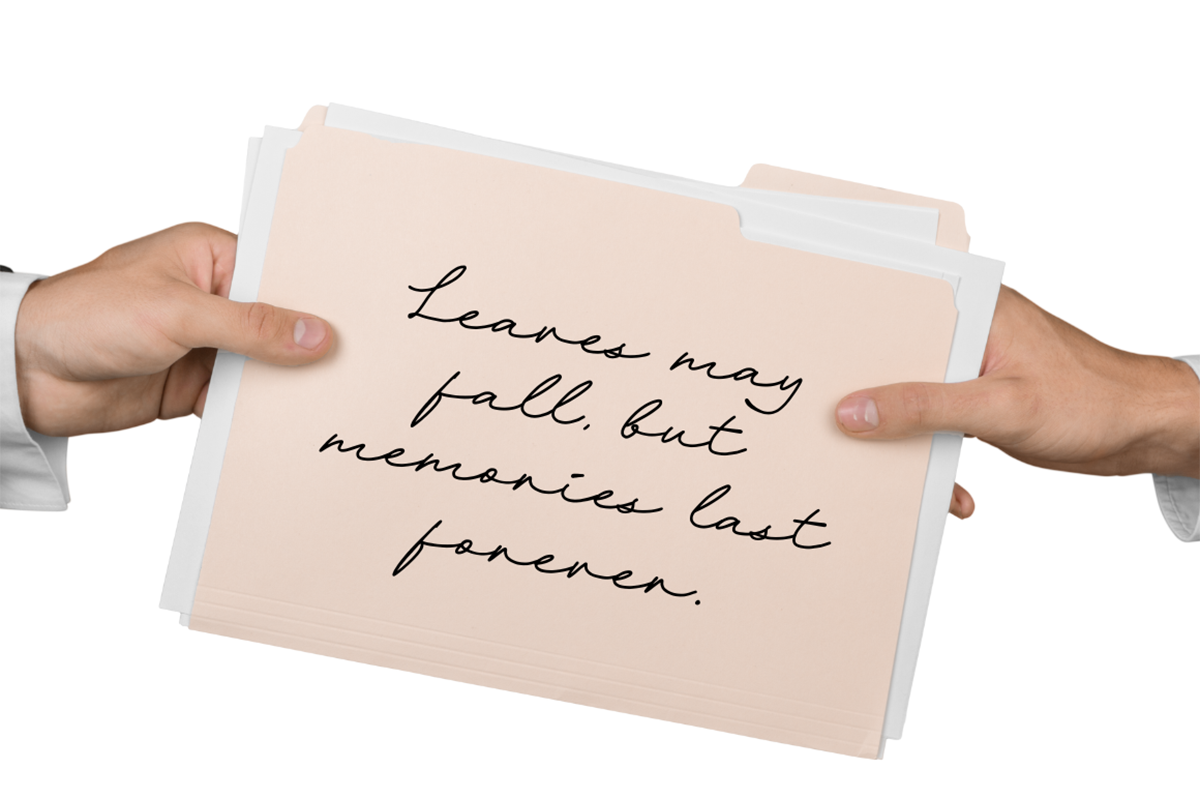 Leaves may
fall, but
memories last
forever.